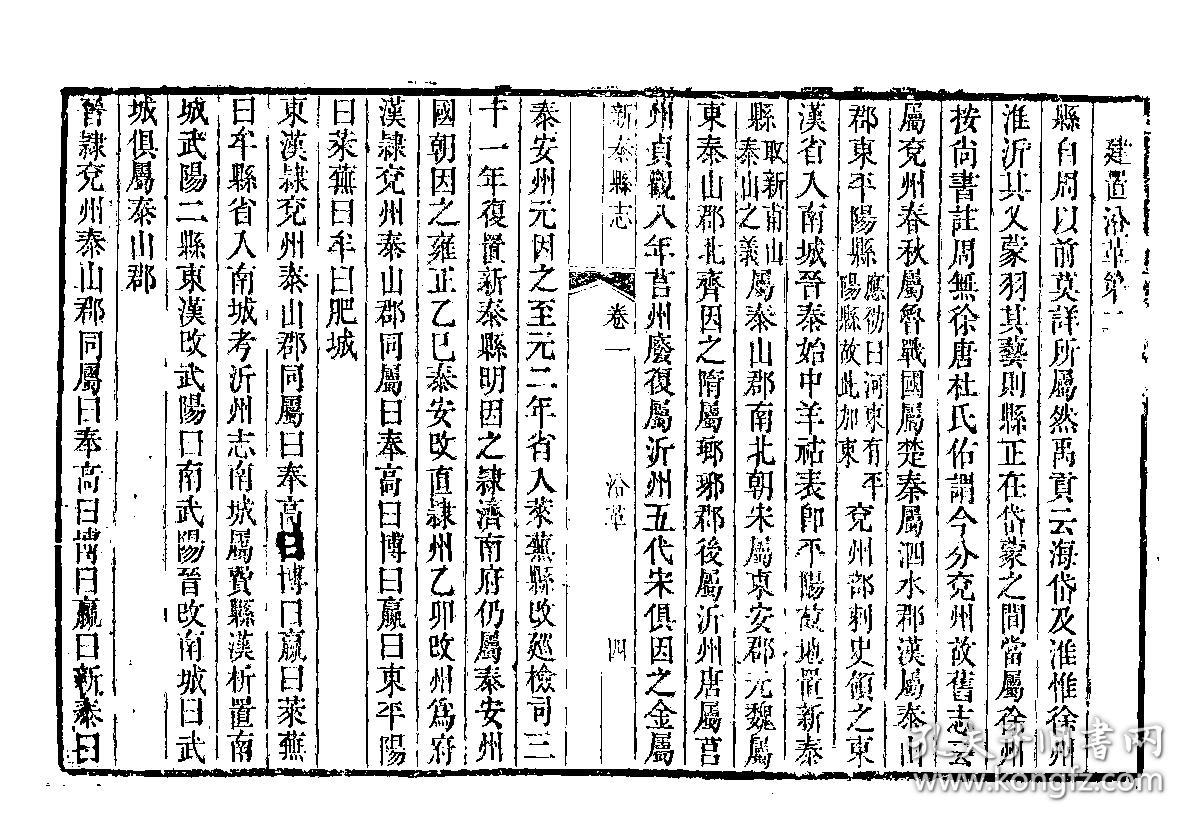 建置沿革第二
縣自周以前莫詳所屬然禹貢云海岱及淮惟徐州
淮沂其乂蒙羽其藝則縣正在岱蒙之間當屬徐州
按尚書註周無徐唐杜氏佑謂今分兗州故舊志云
屬兗州春秋屬魯戰國屬楚秦屬泗水郡漢屬泰山
郡東平陽縣應劭曰河東有平陽縣故此加東兗州部刺史領之東
漢省入南城晉泰始中羊祜表卽平陽故地置新泰
縣取新甫山泰山之義屬泰山郡南北朝宋屬東安郡元魏屬
東泰山郡北齊因之隋屬瑯琊郡後屬沂州唐屬莒
州貞觀八年莒州廢復屬沂州五代宋俱因之金屬
新泰縣志 卷一 沿革 四
泰安州元因之至元二年省入萊蕪縣改廵檢司三
十一年復置新泰縣明因之隸濟南府仍屬泰安州
國朝因之雍正乙巳泰安改直隸州乙卯改州爲府
漢隸兗州泰山郡同屬曰奉高曰博曰嬴曰東平陽
曰萊蕪曰牟曰肥城
東漢隸兗州泰山郡同屬曰奉高曰博曰嬴曰萊蕪
曰牟縣省入南城考沂州志南城屬費縣漢析置南
城武陽二縣東漢改武陽曰南武陽晉改南城曰武
城俱屬泰山郡
晉隸兗州泰山郡同屬曰奉高曰博曰嬴曰新泰曰
孔夫子旧书网
www.kongfz.com